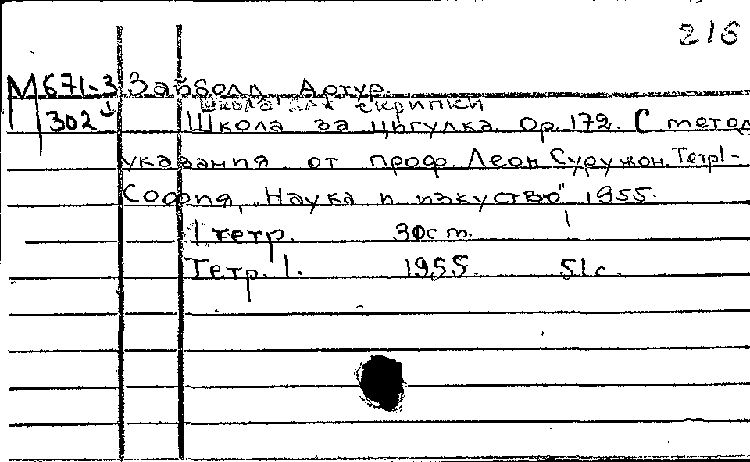 216
М671-3 Зайболд Артур.
Школа для скрипки
302 Школа за цигулка. Op.172. С метод
указания от проф. Леон Суружон. Тетр1-
София, „Наука и изкуство" 1955.
1 тетр. 30 см.
Тетр. 1. 1955 51 с.